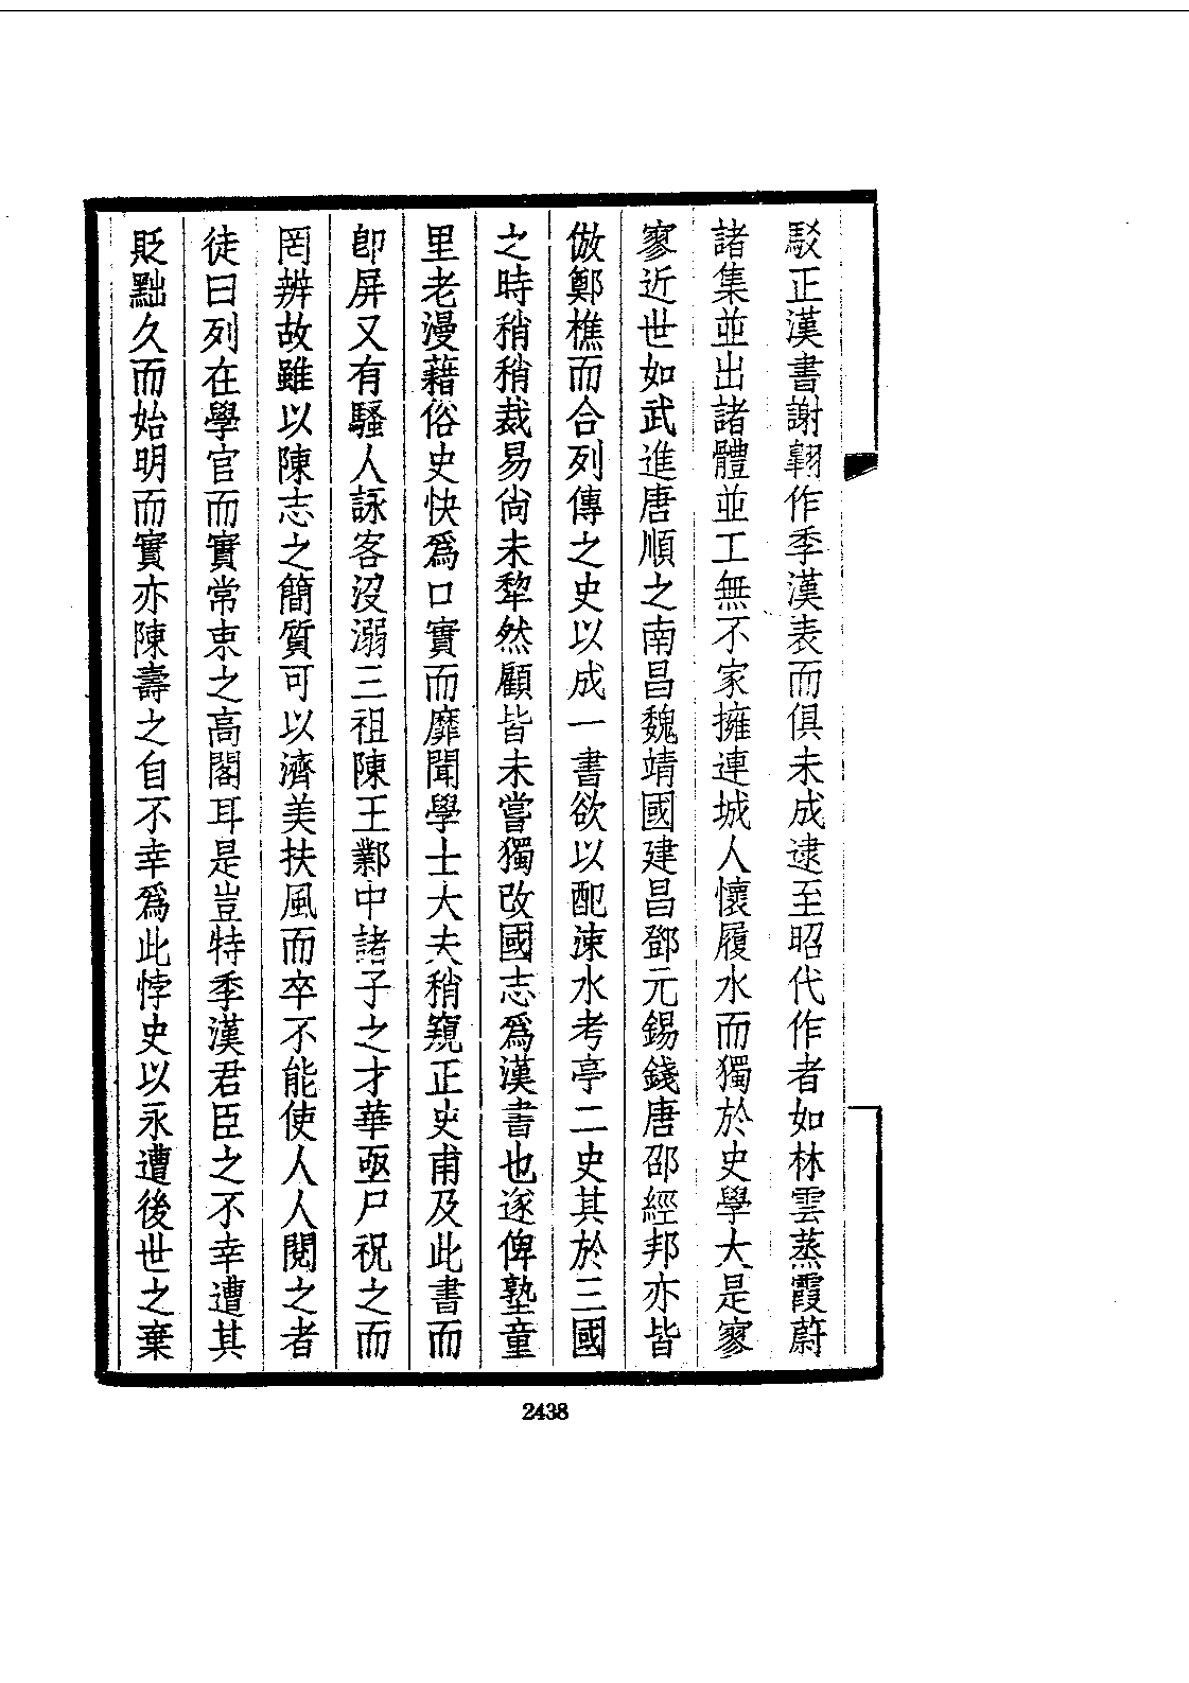 駁正漢書謝翱作季漢表而俱未成逮至昭代作者如林雲蒸霞蔚
諸集並出諸體並工無不家擁連城人懷履水而獨於史學大是寥
寥近世如武進唐順之南昌魏靖國建昌鄧元錫錢唐邵經邦亦皆
倣鄭樵而合列傳之史以成一書欲以配涑水考亭二史其於三國
之時稍稍裁易尙未犂然顧皆未嘗獨改國志爲漢書也遂俾塾童
里老漫藉俗史快爲口實而靡聞學士大夫稍窺正史甫及此書而
卽屏又有騷人詠客沒溺三祖陳王鄴中諸子之才華亟尸祝之而
罔辨故雖以陳志之簡質可以濟美扶風而卒不能使人人閱之者
徒曰列在學官而實常束之高閣耳是豈特季漢君臣之不幸遭其
貶黜久而始明而實亦陳壽之自不幸爲此悖史以永遭後世之棄
2438